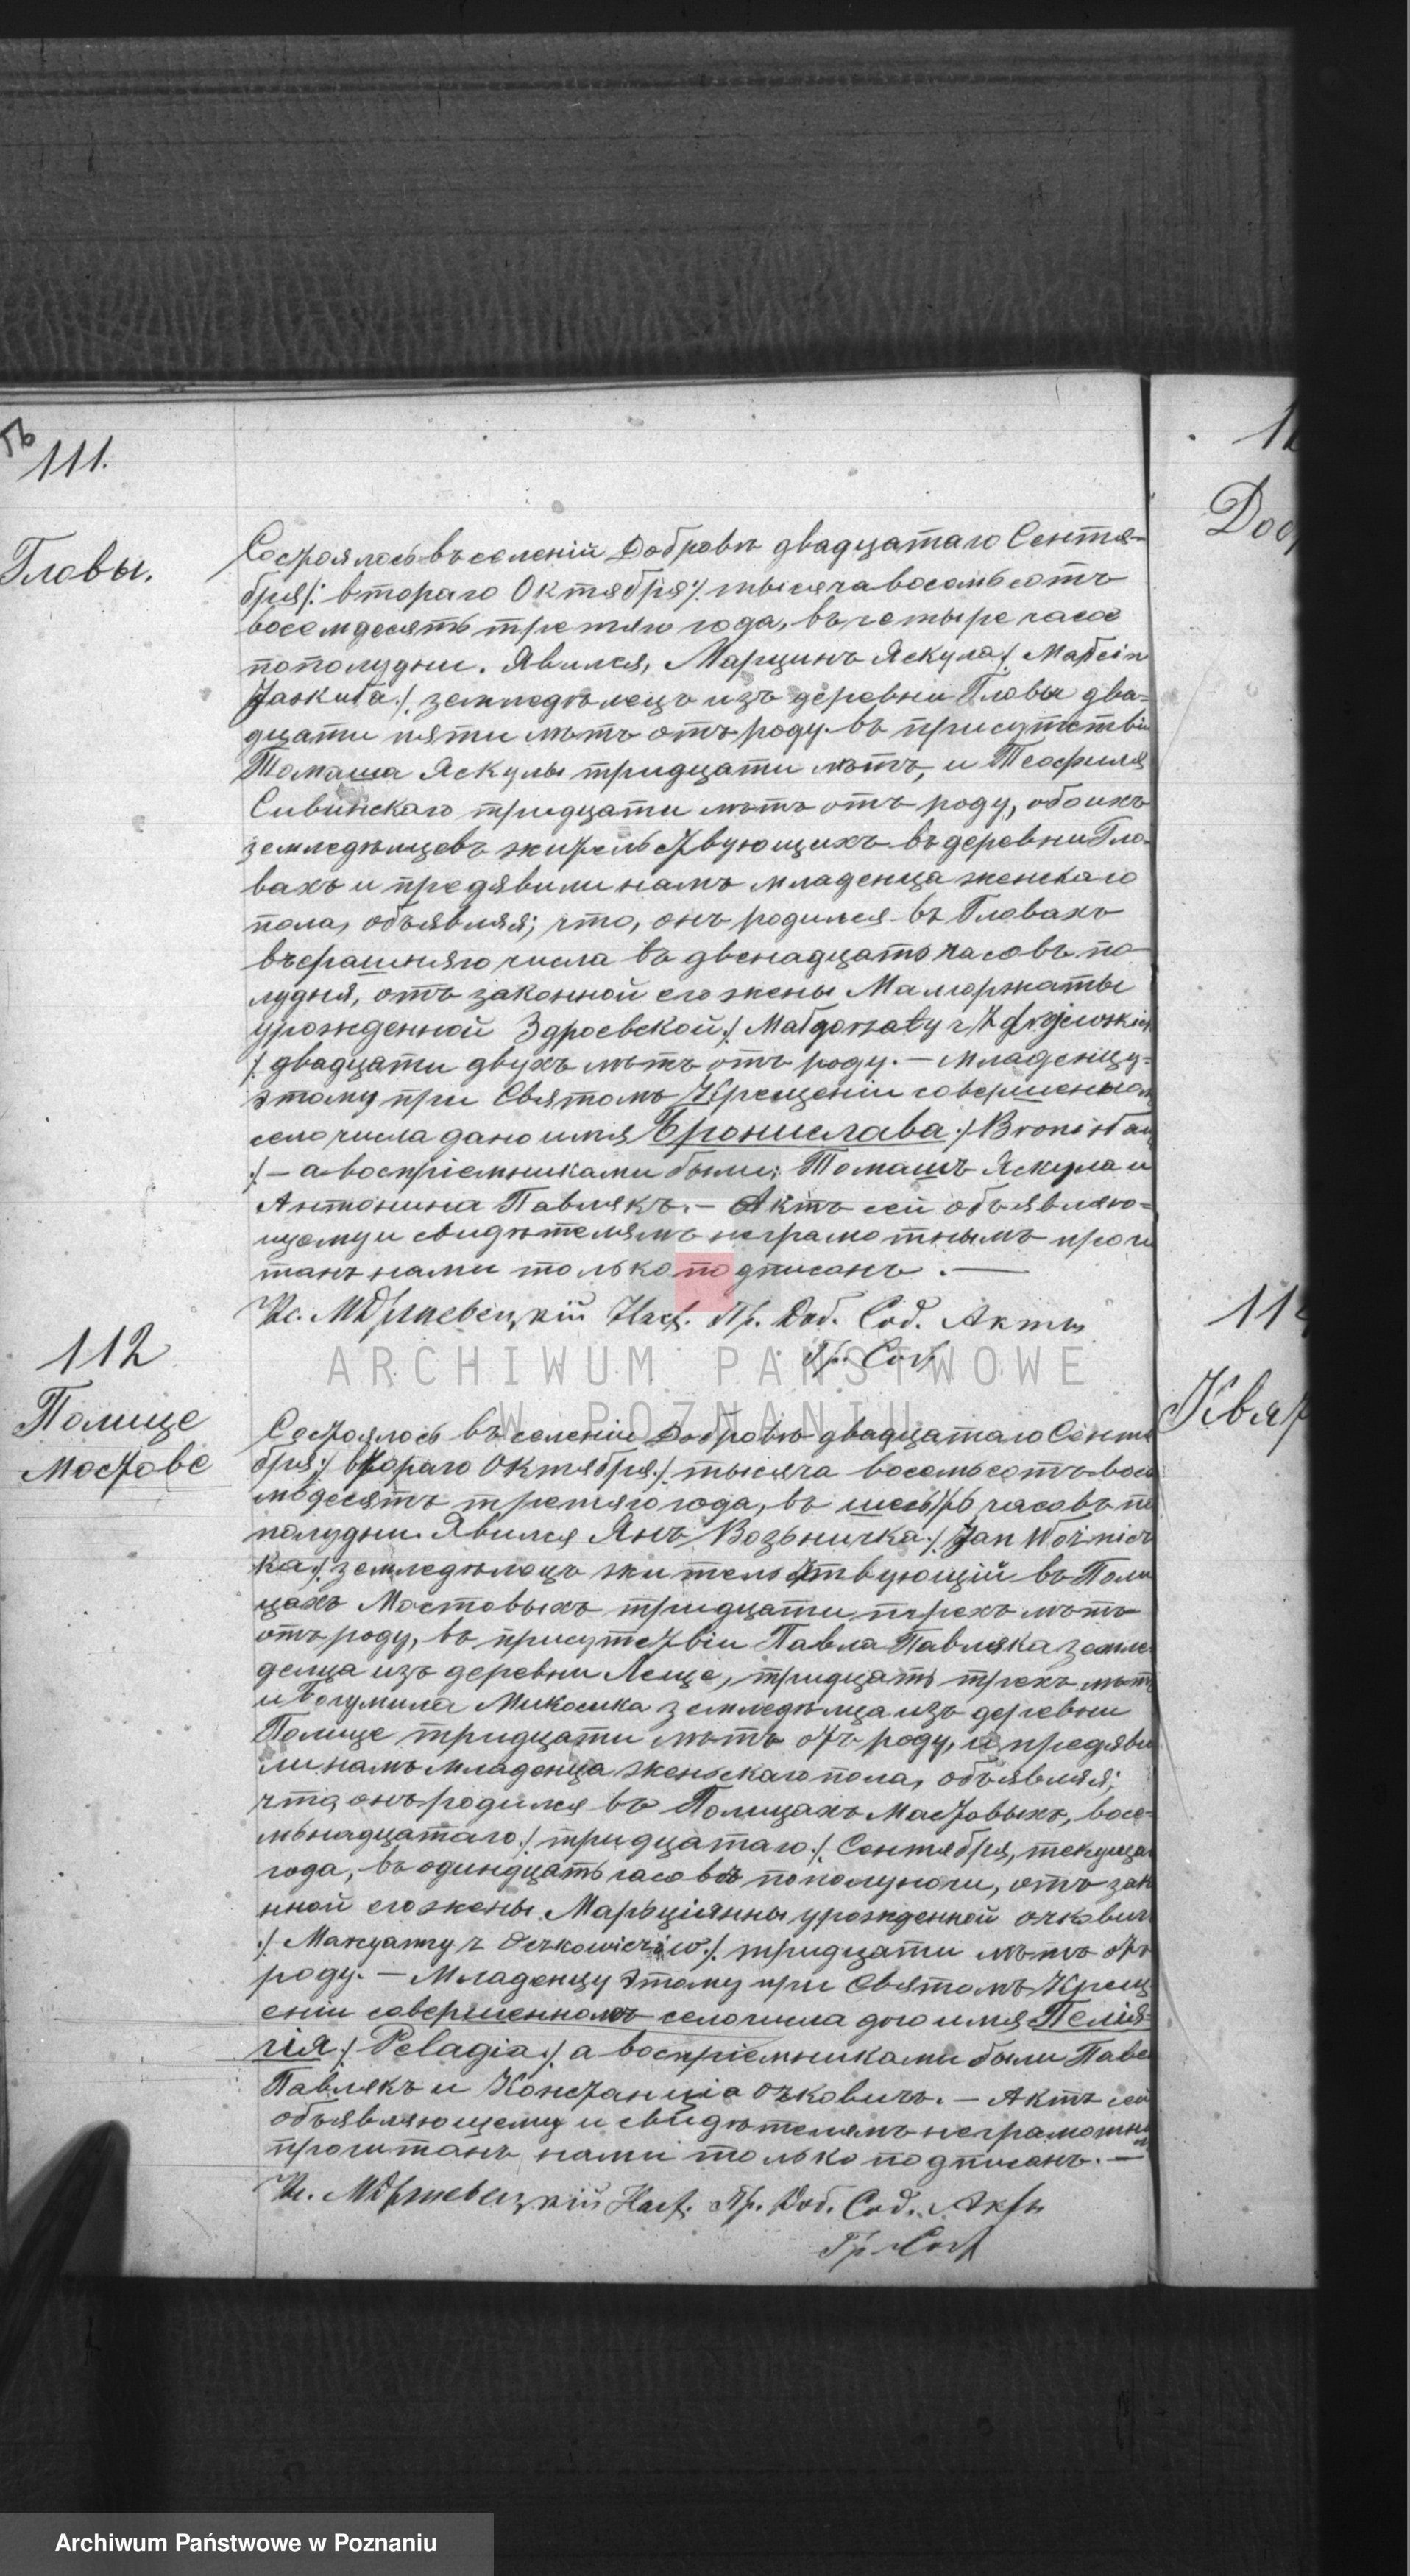 111.
Гловы.
Состоялось въ селеніи Добровъ двадцатаго Сентя-
бря /: втораго Октября :/ тысяча восемьсотъ
восемдесятъ третяго года, въ четыре часа
пополудни. Явился, Марцинъ Яскула /: Marcin
Jaskuła :/ земледѣлецъ изъ деревни Гловы два-
дцати пяти лѣтъ отъ роду въ присутствіи
Томаша Яскулы тридцати лѣтъ, и Теофиля
Сивинскаго тридцати лѣтъ отъ роду, обоихъ
земледѣлцевъ жительствующихъ въ деревни Гло-
вахъ и предявили намъ младенца женскаго
пола, объявляя; что, онъ родился въ Гловахъ
вчерашняго числа въ двенадцать часовъ по-
лудня, отъ законной его жены Малгоржаты
урожденной Здроевской /: Małgorzaty z Zdrojewskich
:/ двадцати двухъ лѣтъ отъ роду. — Младенцу-
этому при Святомъ Крещеніи совершеном
сего числа дано имя Бронислава /: Bronisława
:/ — а воспріемниками были: Томашъ Яскула и
Антонина Павлякъ. — Актъ сей объявляю-
щему и свидѣтелямъ неграмотнымъ прочи
танъ нами только подписанъ. —
Кс. Наст. Пр. Доб. Сод. Акты
Гр. Сост.
112
Полице
Мостове
Состоялось въ селеніи Добровъ двадцатаго Сентя
бря /: втораго Октября :/ тысяча восемьсотъ восе
мьдесятъ третяго года, въ шесть часовъ по
полудни. Явился Янъ Возьничка /: Jan Woźnicz
ka :/ земледѣлецъ жительствующій въ Поли
цахъ Мостовыхъ тридцати трехъ лѣтъ
отъ роду, въ присутствіи Павла Павляка земле
делца изъ деревни Леще, тридцать трехъ лѣтъ
и Богумила Микосика земледѣлца изъ деревни
Полице тридцати лѣтъ отъ роду, и предяви
ли намъ младенца женьскаго пола, объявляя;
что онъ родился въ Полицахъ Мастовыхъ, восе-
мьнадцатаго /: тридцатаго :/ Сентября, текуща
года, въ одиндцать часовъ пополуночи, отъ зак
нной его жены Марьціянны урожденной Очкович
/: Marcyanny z Oczkowiczów :/ тридцати лѣтъ отъ
роду. — Младенцу этому при Святомъ Крещ
еніи совершенномъ сего числа дано имя Пеля-
гія /: Pelagia :/ а воспріемниками были Паве
Павлякъ и Констанція Очковичъ. — Актъ сей
объявляющему и свидѣтелямъ неграмотны
прочитанъ нами только подписанъ. —
Кс. Наст. Пр. Доб. Сод. Акты
Гр. Сост
ARCHIWUM PAŃSTWOWE
W POZNANIU
11
Archiwum Państwowe w Poznaniu